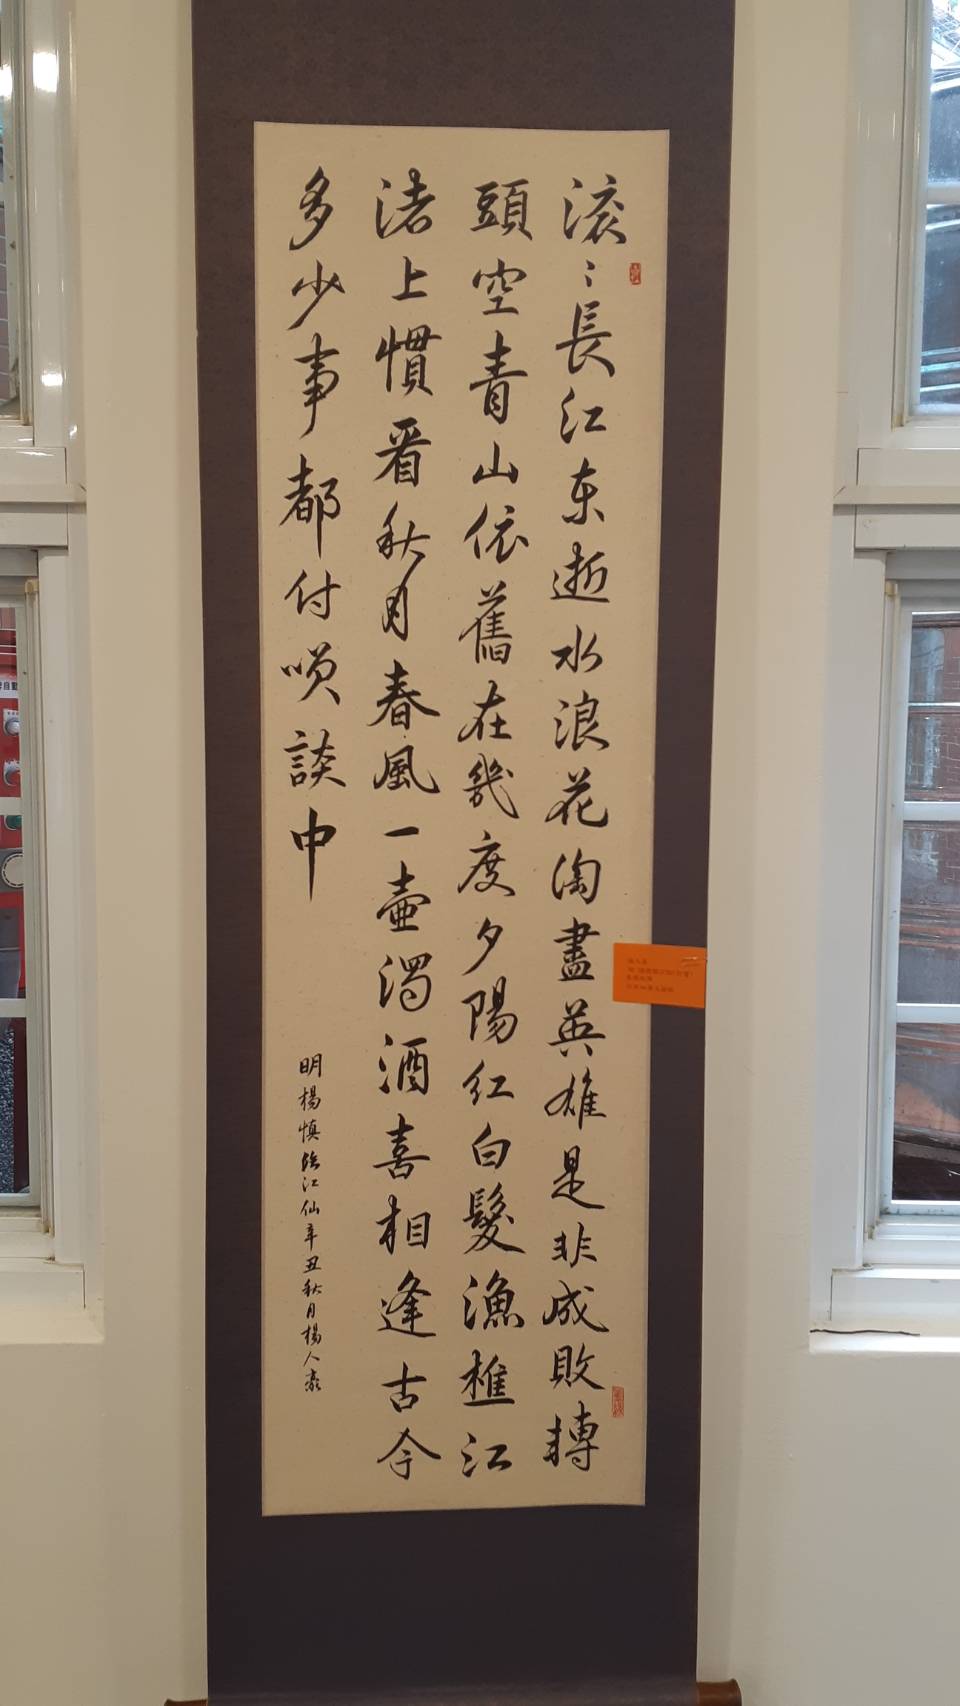 滚〻長江东逝水浪花淘盡英雄是非成敗轉
頭空青山依舊在幾度夕陽红白髮漁樵江
渚上慣看秋月春風一壺濁酒喜相逢古今
多少事都付唉談中
明楊慎臨江仙辛丑秋月楊人豪